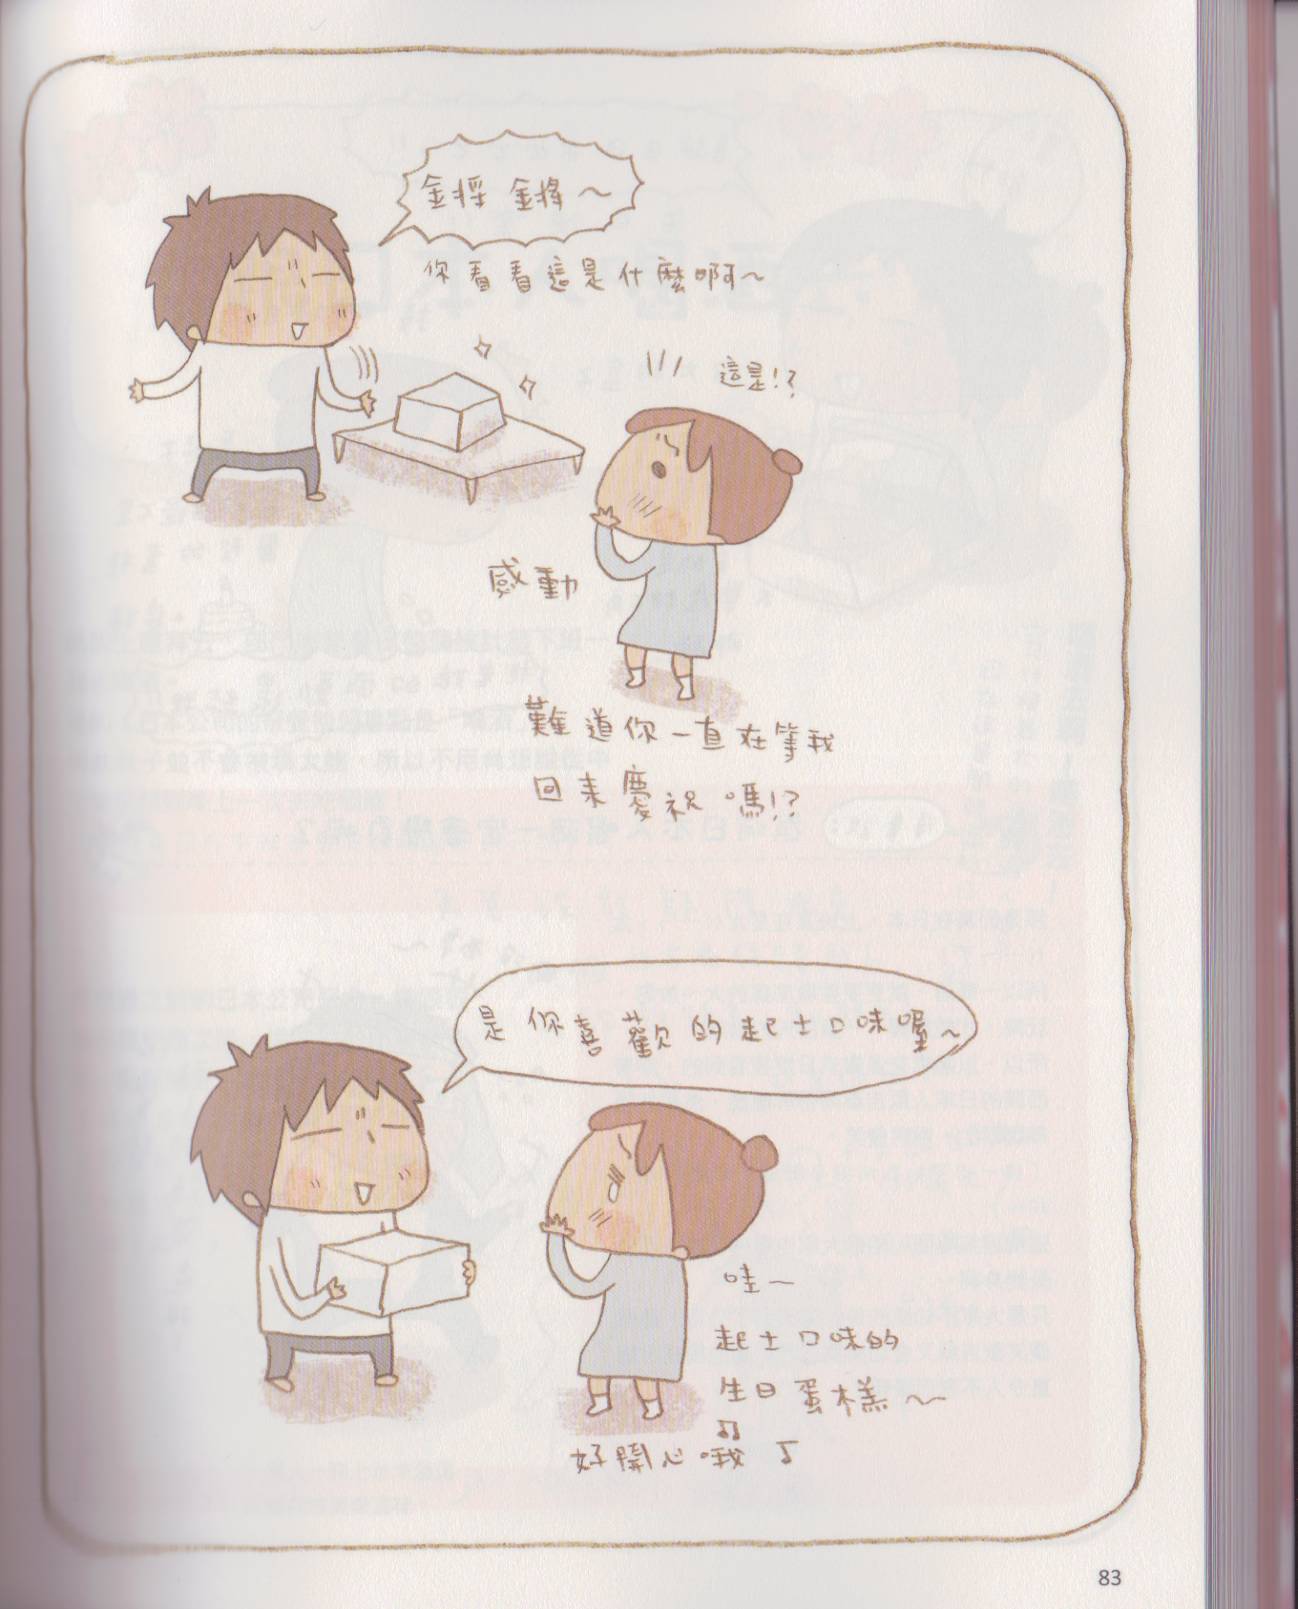 鏘 鏘～
你看看這是什麼啊～
這是!?
感動
難道你一直在等我
回來慶祝嗎!?
是你喜歡的起士口味喔～
哇～
起士口味的
生日蛋糕～
好開心哦♪
83